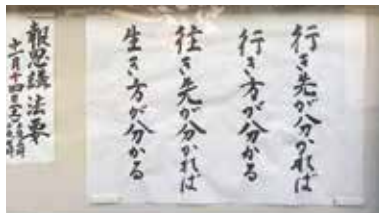 行き先が分かれば
行き方が分かる
往き先が分かれば
生き方が分かる
報恩講法要
十一月十四日